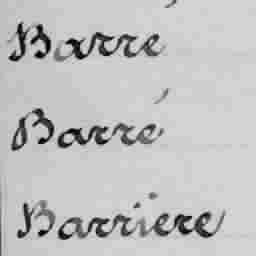 Barré
Barré
Barriere